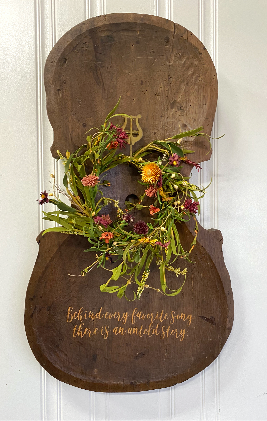 Behind every favorite song
there is an untold story.